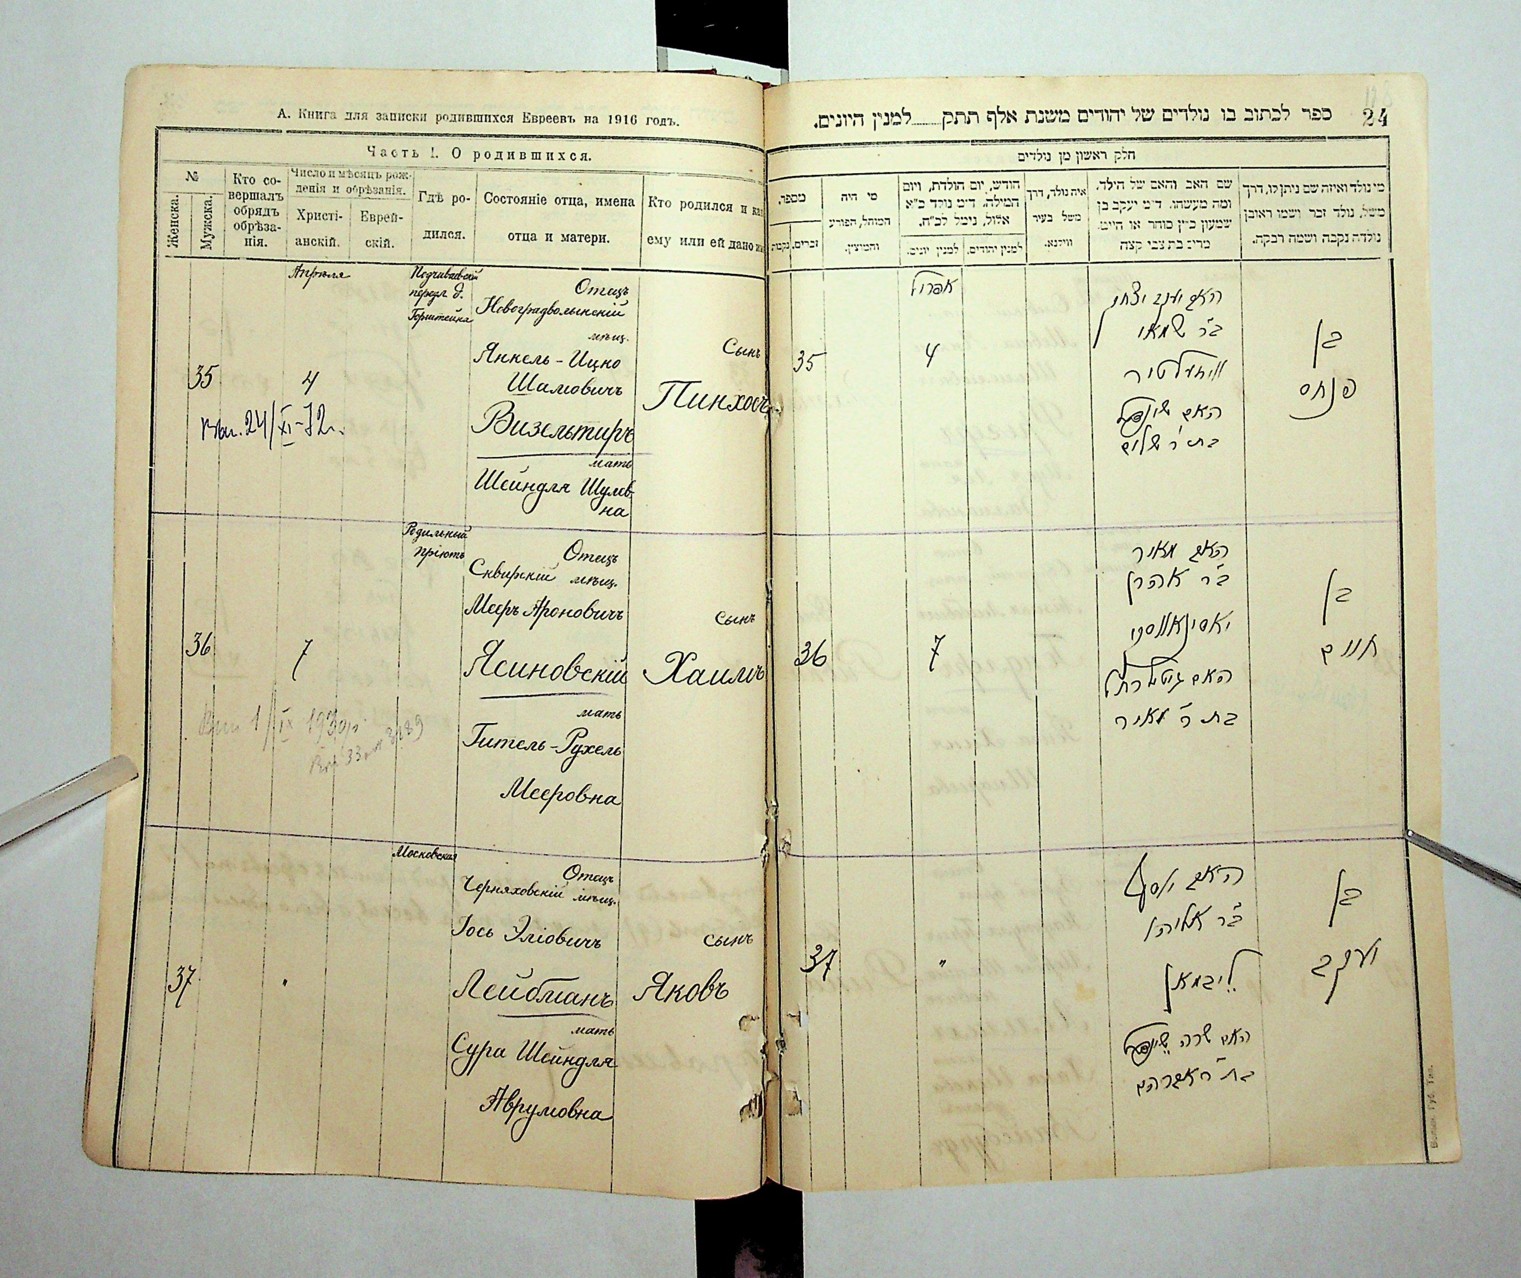 А. Книга для записки родившихся Евреевъ на 1916 годъ.
Часть I. О родившихся.
№
Женска.
Мужска.
Кто со-
вершалъ
обрядъ
обрѣза-
нія.
Число и мѣсяцъ рож-
денія и обрѣзанія.
Христі-
анскій.
Еврей-
скій.
Гдѣ ро-
дился.
Состояніе отца, имена
отца и матери.
Кто родился и
ему или ей дано
35
Апрѣля
4
Отецъ
Новоградволынскій
мѣщ.
Янкель-Ицко
Шамовичъ
Визельтиръ
мать
Шейндля Шулев-
на
Сынъ
Пинхосъ
36
7
Родильный
пріютъ
Отецъ
Сквирскій мѣщ.
Мееръ Ароновичъ
Ясиновскій
мать
Гитель-Рухель
Мееровна
сынъ
Хаимъ
37
"
Московская
Отецъ
Черняховскій мѣщ.
Іось Эліовичъ
Лейбманъ
мать
Сура Шейндля
Аврумовна
сынъ
Яковъ
24
ספר לכתוב בו נולדים של יהודים משנת אלף תתק למנין היונים.
חלק ראשון מן נולדים
מספר.
זכרים.
נקבות
מי היה
המוהל, הפורע
והמוצץ.
חודש, יום הולדת, ויום
המילה. ד״מ נולד כ״א
אלול, נימל לכ״ח.
למנין יונים.
למנין יהודים.
איה נולד, דרך
משל בעיר
ווילנא.
שם האב והאם של הילד.
ומה מעשהו. ד״מ יעקב בן
שמעון כ״ץ סוחר או חייט.
מרים בת צבי קצה
מי נולד ואיזה שם ניתן לו, דרך
משל, נולד זכר ושמו ראובן
נולדה נקבה ושמה רבקה.
35
אפריל
4
האב יעקב יצחק
ב״ר שמאי
וויזעלטיר
האם שיינדל
בת ר׳ שלום
בן
פנחס
36
7
האב מאיר
ב״ר אהרן
יאסינאווסקי
האם גיטל רחל
בת ר׳ מאיר
בן
חיים
37
"
האב יוסף
ב״ר אליהו
לייבמאן
האם שרה שיינדל
בת ר׳ אברהם
בן
יעקב